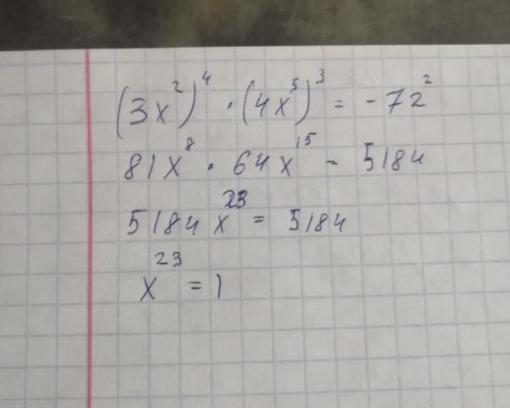 (3x²)⁴ · (4x⁵)³ = -72²
81x⁸ · 64x¹⁵ - 5184
5184x²³ = 5184
x²³ = 1